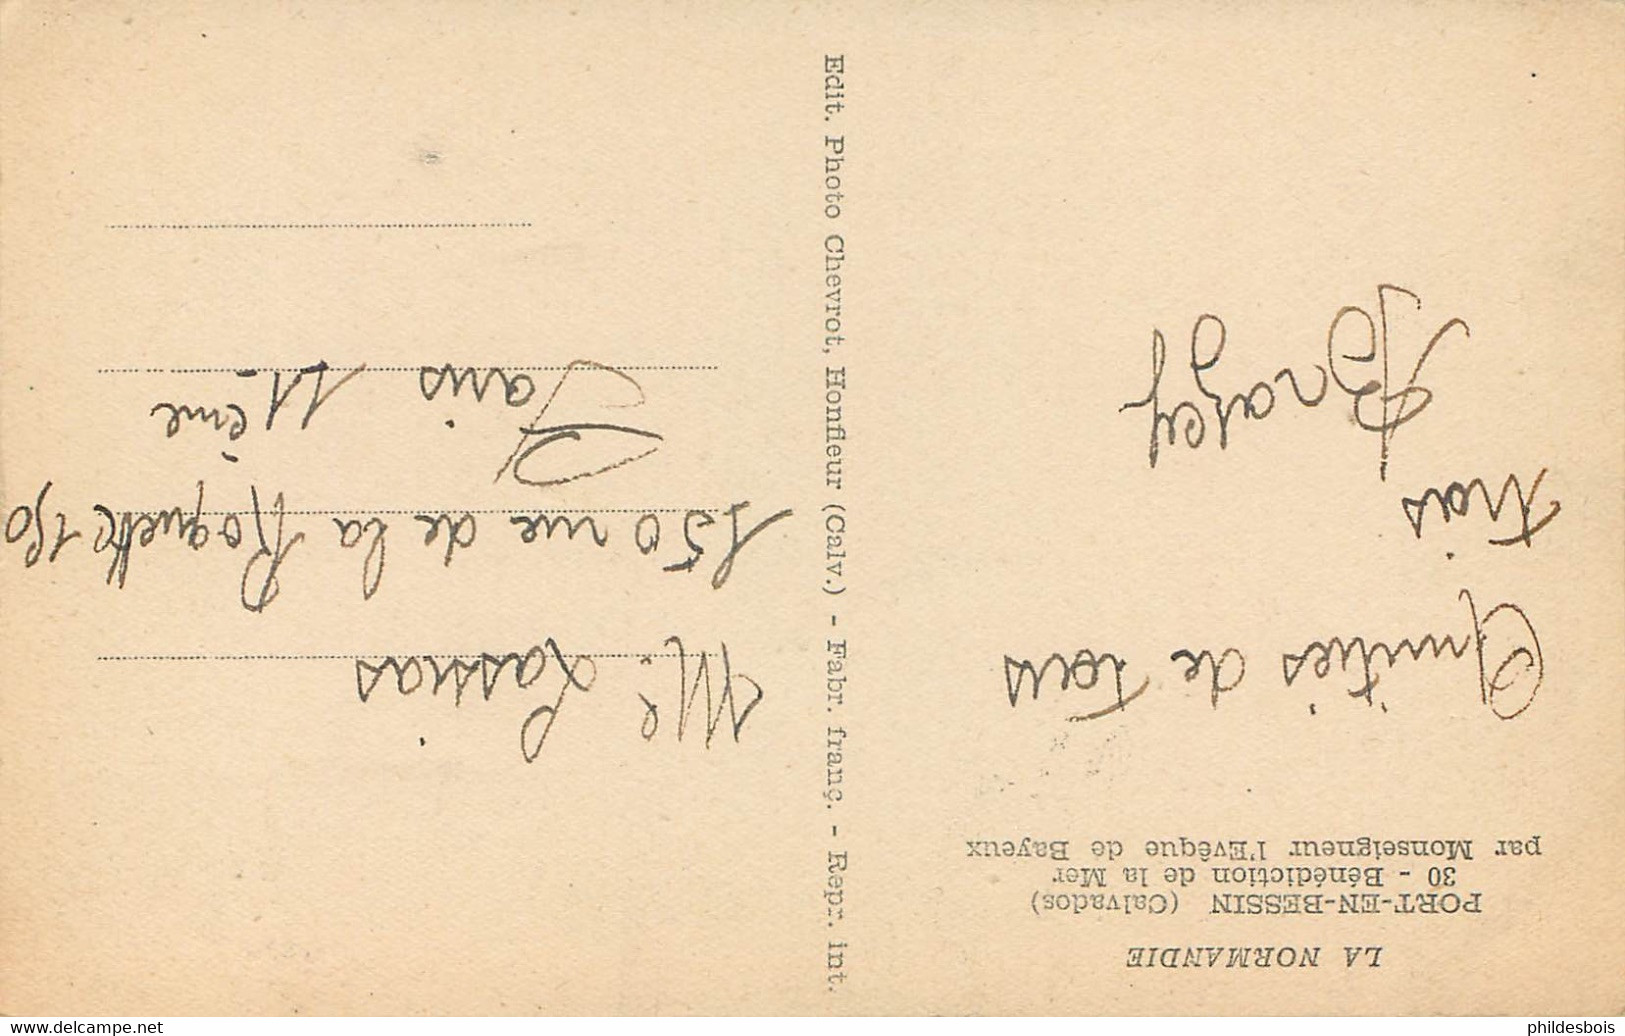 LA NORMANDIE
PORT-EN-BESSIN (Calvados)
30 - Bénédiction de la Mer
par Monseigneur l'Evêque de Bayeux
Amitiés de tous
trois
Brazey
Edit. Photo Chevrot, Honfleur (Calv.) - Fabr. franç. - Repr. int.
Mr. Lassias
150 rue de la Roquette 150
Paris 11-ème
www.delcampe.net
phildesbois